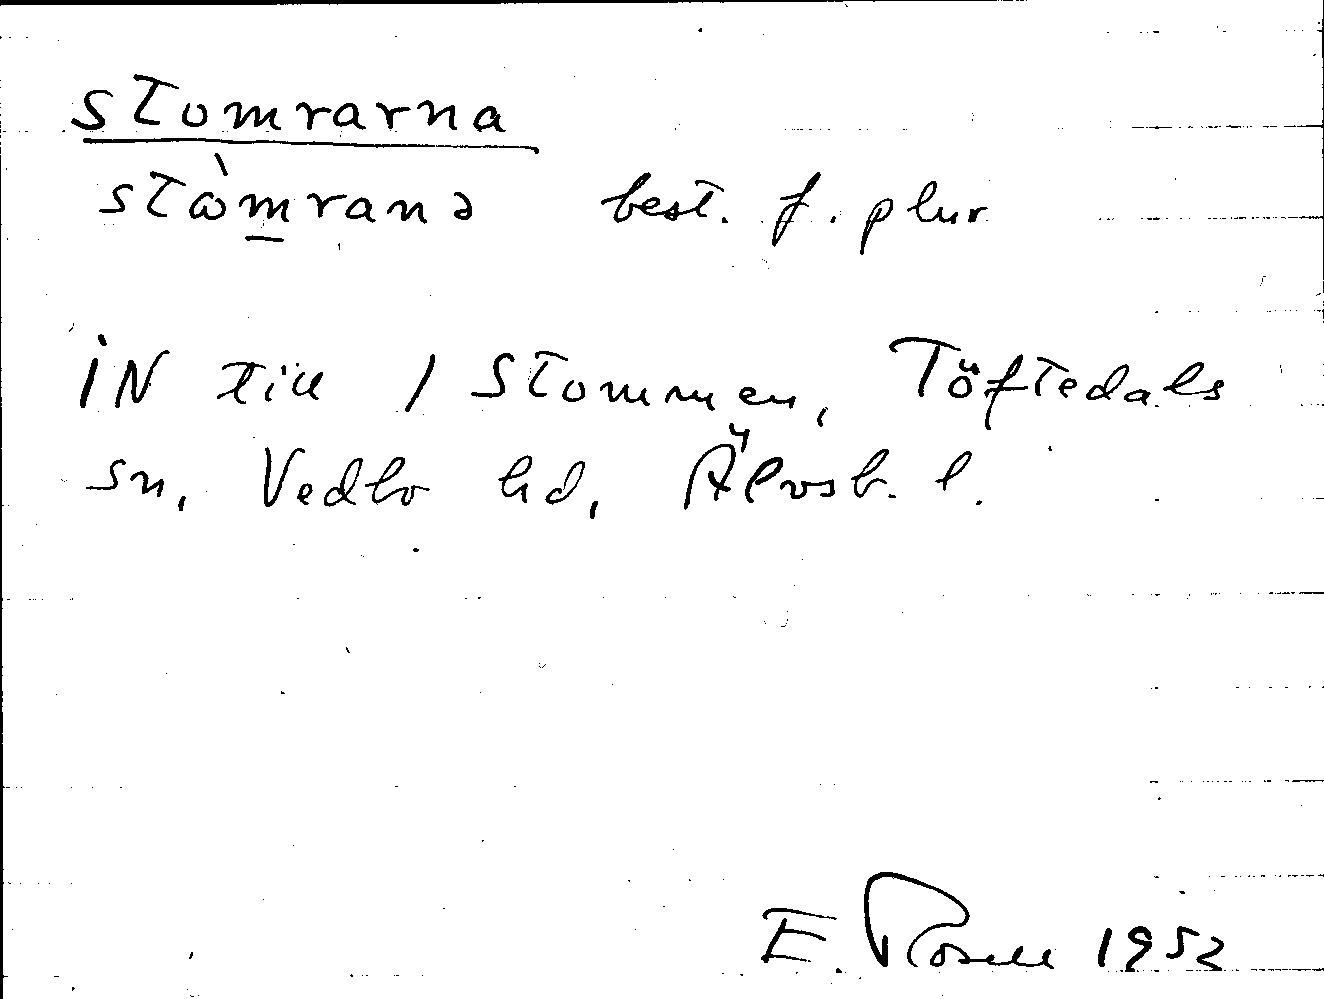 stomrarna
stòmranə best. f. plur
IN till 1 Stommen, Töftedals
sn, Vedbo hd, Älvsb. l.
E. Rosell 1952